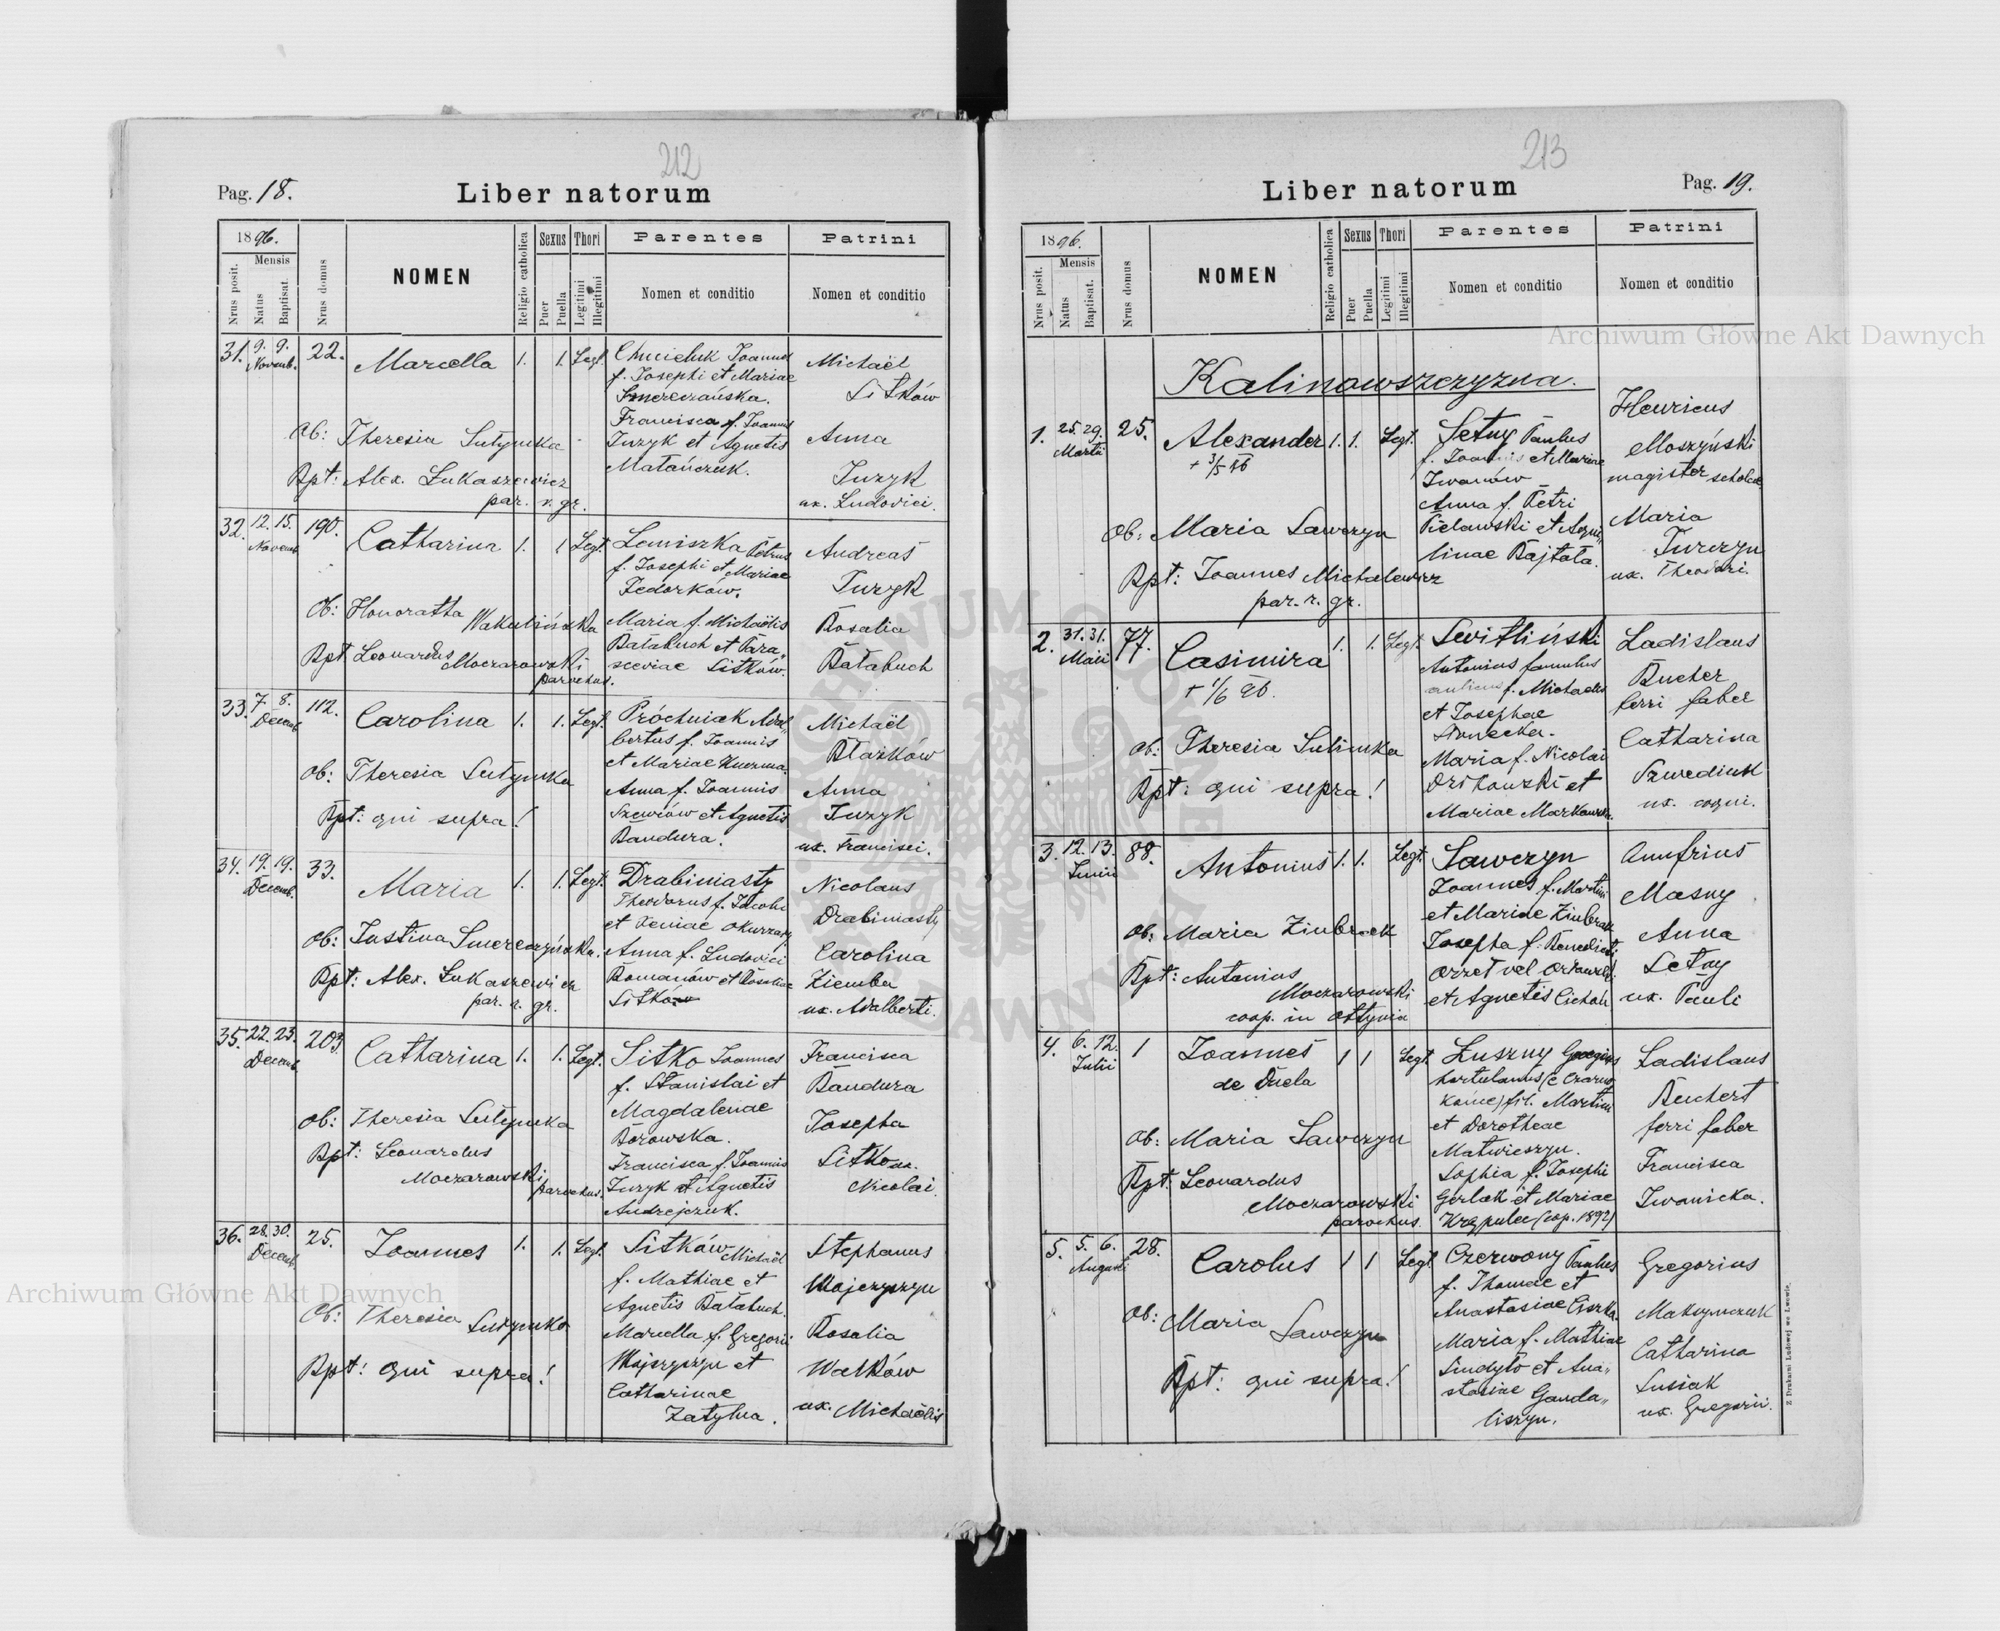 212
Pag. 18.
Liber natorum
1896.
Mensis
Nrus posit.
Natus
Baptisat.
Nrus domus
NOMEN
Religio catholica
Sexus
Puer
Puella
Thori
Legitimi
Illegitimi
Parentes
Nomen et conditio
Patrini
Nomen et conditio
31. 9. 9. Novemb. 22. Marcella 1. 1. Legt.
Ob: Theresia Sutymka
Bpt: Alex. Łukaszewicz
par. r. gr.
Joannes
f. Josephi et Mariae
Francisca f. Joannis
Juzyk et Agnetis
Matańczuk.
Michaël
Sitków
Anna
Juzyk
ux. Ludovici.
32. 12. 15. Novemb. 190. Catharina 1. 1 Legt.
Ob: Honoratha Wakulińska
Bpt Leonardus Moczarowski
parochus.
Lemiszka Petrus
f. Josephi et Mariae
Fedorków.
Maria f. Michaëlis
Bałabuch et Para-
sceviae Sitków.
Andreas
Juzyk
Rosalia
Bałabuch
33. 7. 8. Decemb. 112. Carolina 1. 1. Legt.
Ob: Theresia Sutymka
Bpt: qui supra!
Próchniak Adal-
bertus f. Joannis
et Mariae Kuzma.
Anna f. Joannis
Szewców et Agnetis
Bandura.
Michaël
Błażków
Anna
Juzyk
ux. Francisci.
34. 19. 19. Decemb. 33. Maria 1. 1. Legt.
Ob: Justina Smereczyńska.
Bpt: Alex. Łukaszewicz
par. r. gr.
Drabiniasty
Theodorus f. Jacobi
et Xeniae
Anna f. Ludovici
Romanów et Rosaliae
Sitków
Nicolaus
Drabiniasty
Carolina
Ziemba
ux. Adalberti.
35. 22. 23. Decemb. 203. Catharina 1. 1. Legt.
Ob: Theresia Sutymka
Bpt: Leonardus
Moczarowski
parochus.
Sitko Joannes
f. Stanislai et
Magdalenae
Borowska.
Francisca f. Joannis
Juzyk et Agnetis
Andrejczuk.
Francisca
Bandura
Josepha
Sitko ux.
Nicolai.
36. 28. 30. Decemb. 25. Joannes 1. 1. Legt.
Ob: Theresia Sutymka
Bpt: qui supra!
Sitków Michaël
f. Mathiae et
Agnetis Bałabuch.
Marcella f. Gregorii
Wojczyszyn et
Catharinae
Zatylna.
Stephanus
Wojczyszyn
Rosalia
Walków
ux. Michaëlis
213
Liber natorum
Pag. 19.
1896.
Mensis
Nrus posit.
Natus
Baptisat.
Nrus domus
NOMEN
Religio catholica
Sexus
Puer
Puella
Thori
Legitimi
Illegitimi
Parentes
Nomen et conditio
Patrini
Nomen et conditio
Kalinowszczyzna.
1. 25. 29. Martii 25. Alexander 1. 1. Legt.
+ 3/5 96
Ob: Maria Sawczyn
Bpt: Joannes Michalewicz
par. r. gr.
Setny Paulus
f. Joannis et Mariae
Iwanów
Anna f. Petri
Pielawski et Aqui-
linae Bajtala.
Henricus
Moszyński
magister scholae
Maria
Turczyn
ux. Theodori.
2. 31. 31. Maii 77. Casimira 1. 1. Legt.
+ 1/6 96.
Ob: Theresia Sulimka
Bpt: qui supra!
Switliński
Antonius famulus
aulicus f. Michaelis
et Josephae
Maria f. Nicolai
et
Mariae Markowska.
Ladislaus
Bucher
ferri faber
Catharina
Szwediuk
ux. coqui.
3. 12. 13. Junii 88. Antonius 1. 1. Legt.
Ob: Maria Zinbrak
Bpt: Antonius
Moczarowski
coop. in Ottynia
Sawczyn
Joannes f. Martini
et Mariae Zinbrak
Josepha f. Benedicti
Orzet vel Orłowski
et Agnetis Cichoń
Anufrius
Masny
Anna
Setny
ux. Pauli
4. 6. 12. Julii 1 Joannes 1 1 Legt.
de Ducla
Ob: Maria Sawczyn
Bpt. Leonardus
Moczarowski
parochus.
Łuszny Georgius
hortulanus (e Czarno-
końce) fil. Martini
et Dorotheae
Matwieszyn.
Sophia f. Josephi
Gorlak et Mariae
Krzypulec (cop. 1892)
Ladislaus
Buchert
ferri faber
Francisca
Iwanicka.
5. 5. 6. Augusti 28. Carolus 1 1 Legt.
Ob: Maria Sawczyn
Bpt: qui supra!
Czerwony Paulus
f. Thomae et
Anastasiae Ciszka.
Maria f. Mathiae
Sindyło et Ana-
stasiae Ganda-
liszyn.
Gregorius
Maksymczuk
Catharina
Susiak
ux. Gregorii.
Z Drukarni Ludowej we Lwowie.
Archiwum Główne Akt Dawnych
Archiwum Główne Akt Dawnych
ARCHIWUM GŁÓWNE AKT DAWNYCH